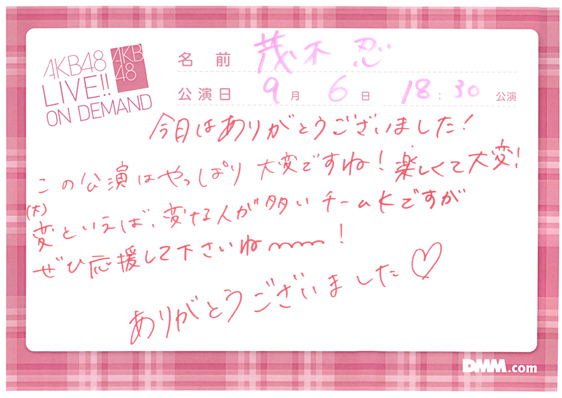 AKB48
LIVE!!
ON DEMAND
AKB
48
名前 茂木忍
公演日 9月6日 18:30 公演
今日はありがとうございました!
この公演はやっぱり大変ですね!楽しくて大変!
(大)
変といえば、変な人が多いチームKですが
ぜひ応援して下さいね〜!
ありがとうございました♡
DMM.com